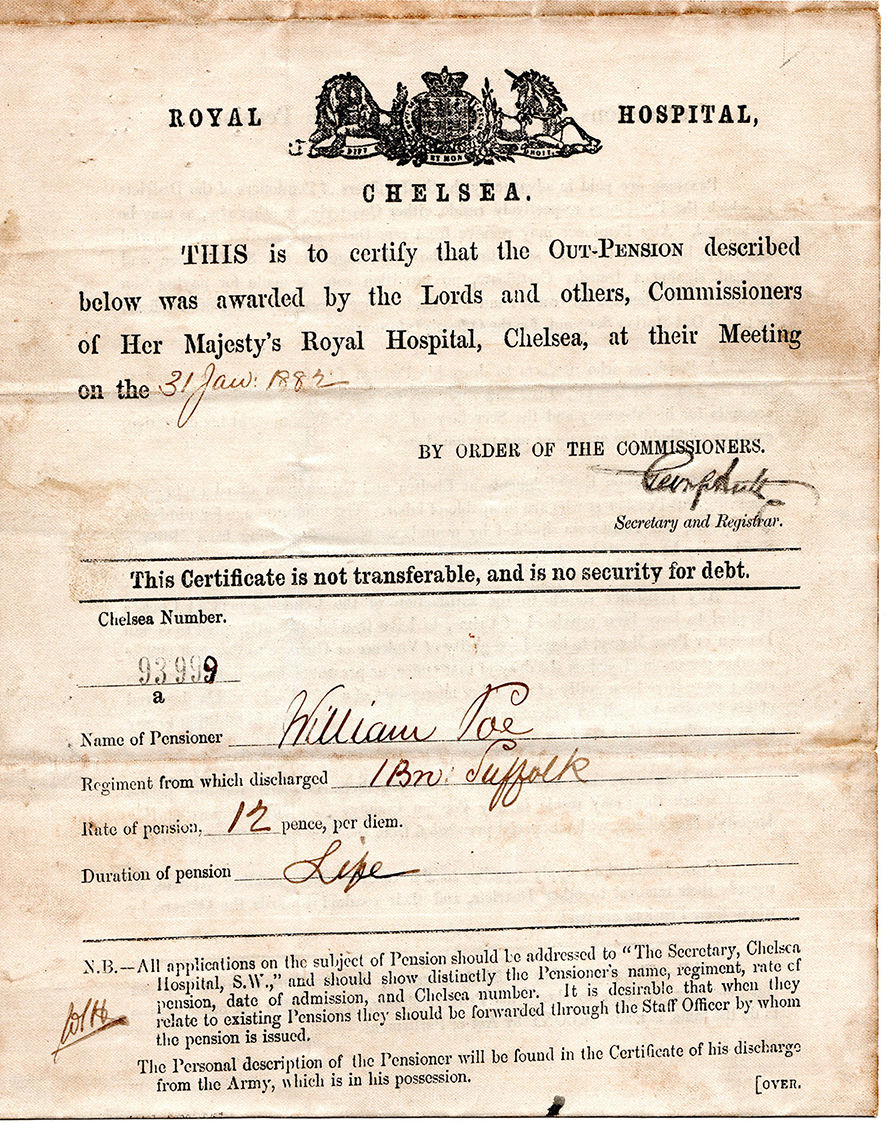 ROYAL HOSPITAL,
DIEU ET MON DROIT
CHELSEA.
THIS is to certify that the OUT-PENSION described
below was awarded by the Lords and others, Commissioners
of Her Majesty's Royal Hospital, Chelsea, at their Meeting
on the 31 Jan: 1882
BY ORDER OF THE COMMISSIONERS.
Secretary and Registrar.
This Certificate is not transferable, and is no security for debt.
Chelsea Number.
93999
a
Name of Pensioner William Poe
Regiment from which discharged 1 Bn: Suffolk
Rate of pension, 12 pence, per diem.
Duration of pension Life
N.B.—All applications on the subject of Pension should be addressed to "The Secretary, Chelsea
Hospital, S.W.," and should show distinctly the Pensioner's name, regiment, rate of
pension, date of admission, and Chelsea number. It is desirable that when they
relate to existing Pensions they should be forwarded through the Staff Officer by whom
the pension is issued.
The Personal description of the Pensioner will be found in the Certificate of his discharge
from the Army, which is in his possession.
[OVER.